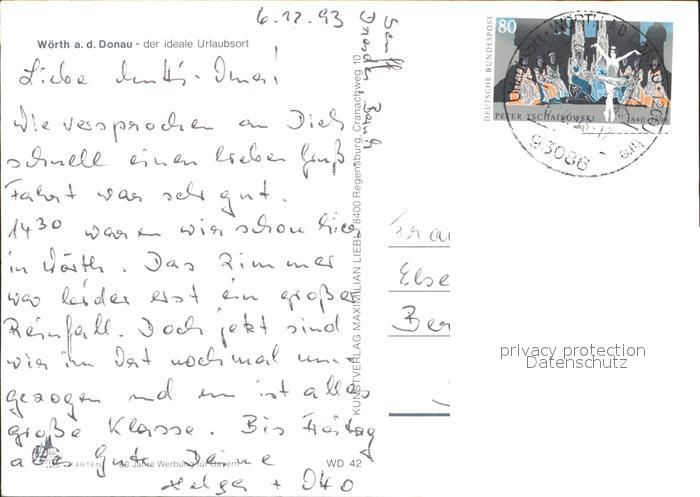 6.12.93
Wörth a. d. Donau - der ideale Urlaubsort
Liebe Omi!
Wie versprochen an Dich
schnell einen lieben Gruß
Fahrt war sehr gut.
14 30 waren wir schon hier
in Wörth. Das Zimmer
war leider erst ein großer
Reinfall. Doch jetzt sind
wir im Ort nochmal um-
gezogen und nun ist alles
große Klasse. Bis Freitag
alles Gute Deine
Helga + Otto
KARTEN
80 Jahre Werbung für Bayern
WD 42
KUNSTVERLAG MAXIMILIAN LIEBL, 8400 Regensburg, Cranachweg 10
80
DEUTSCHE BUNDESPOST
PETER TSCHAIKOWSKI 1840-1893
WÖRTH A D
93086
Frau
Else
privacy protection
Datenschutz